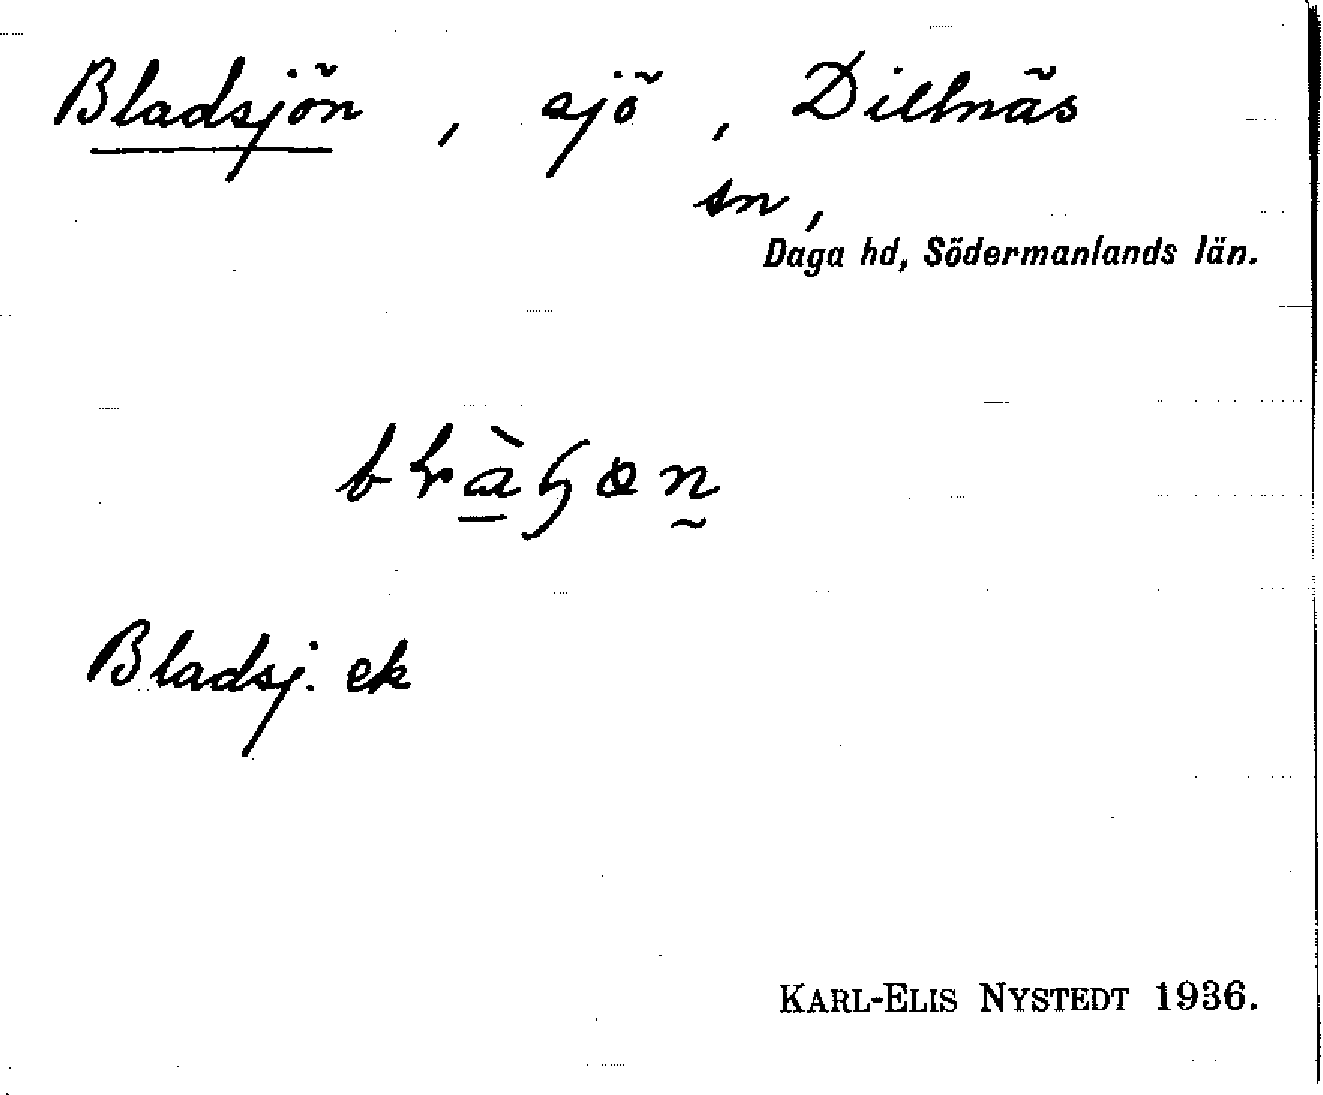 Bladsjön , sjö , Dillnäs
sn ,
Daga hd, Södermanlands län.
Bladsj. ek
KARL-ELIS NYSTEDT 1936.